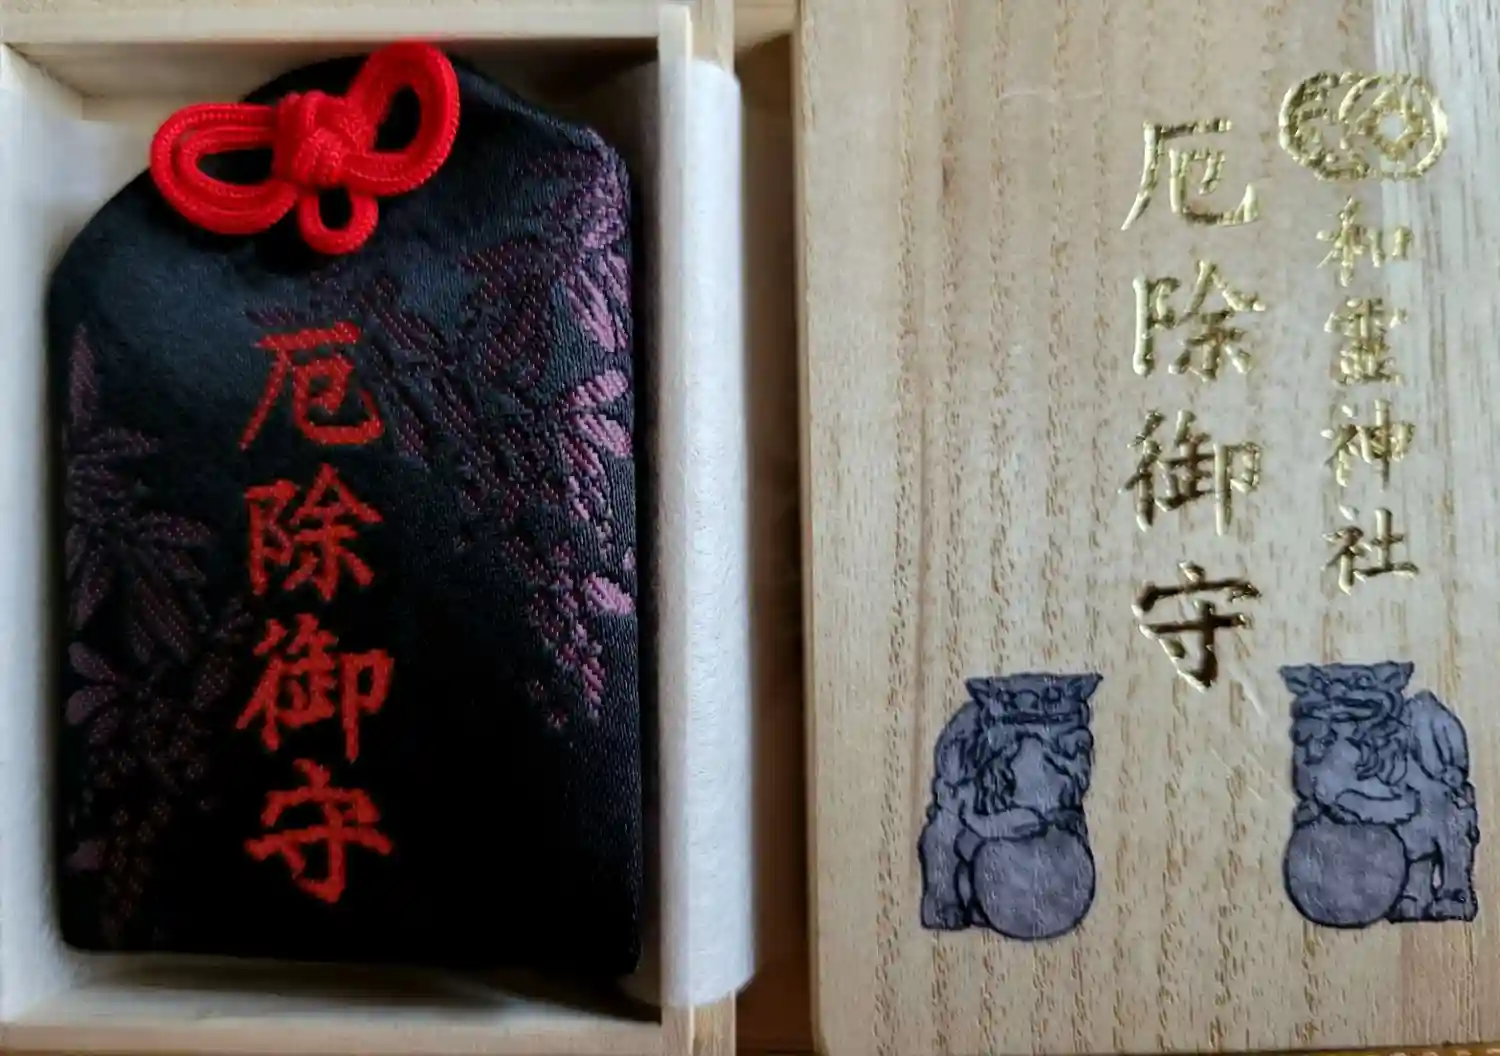 厄除御守
和霊神社
厄除御守